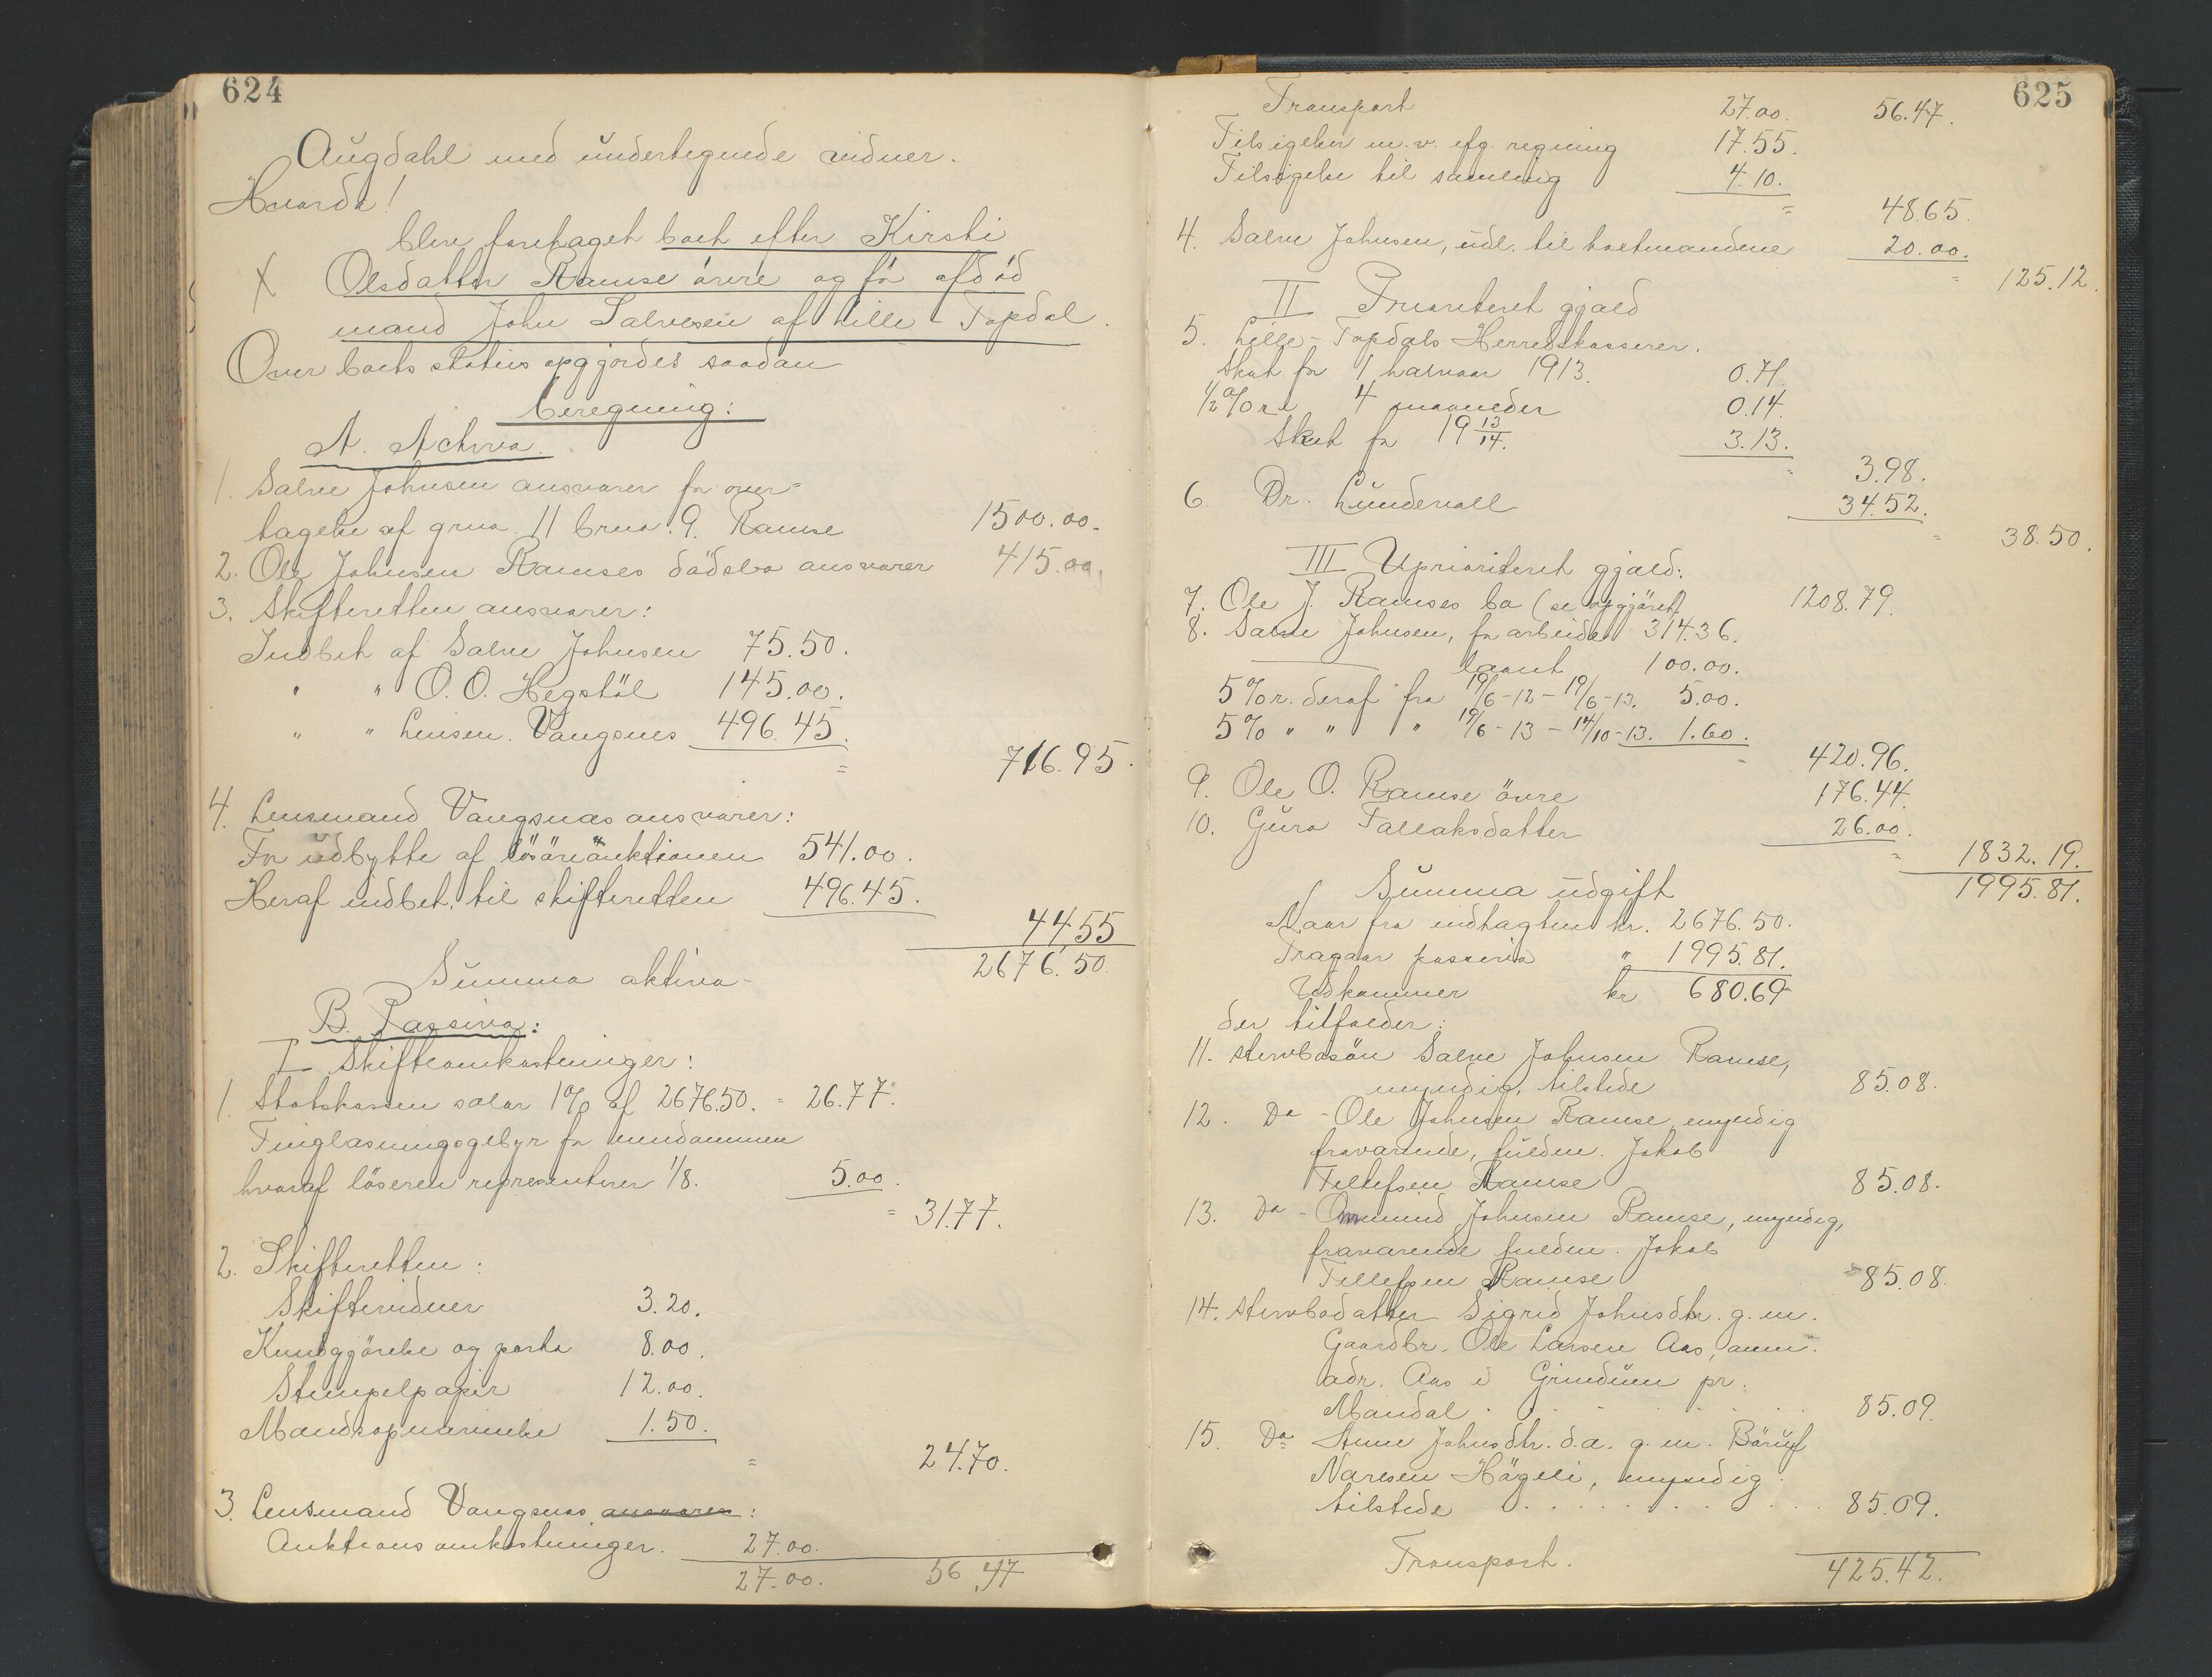 624
Augdahl med undertegnede vidner.
Hvorda!
blev foretaget boet efter Kirsti
X Olsdatter Ramse övre og för afdöd
mand John Salvesen af Lille-Topdal.
Over boets status opgjordes saadan
beregning:
A. Activa.
1. Salve Johnsen ansvarer for over-
tagelse af grno. 11 brno. 9. Ramse 1500.00.
2. Ole Johnsen Ramses dödsbo ansvarer 415.00.
3. Skifteretten ansvarer:
Indbet af Salve Johnsen 75.50.
" " O. O. Hegstöl 145.00.
" " Lensm. Vangsnes 496.45.
= 716.95.
4. Lensmand Vangsnæs ansvarer:
For udbytte af lösöreauktionen 541.00.
Heraf indbet. til skifteretten 496.45.
44.55
Summa aktiva - 2676.50.
B. Passiva:
I Skifteomkostninger:
1. Statskassen salær 1% af 2676.50. = 26.77.
Tinglæsningsgebyr for eiendommen
hvoraf lösören representerer 1/8. 5.00.
= 31.77.
2. Skifteretten:
Skiftevidner 3.20.
Kundgjörelse og porto 8.00.
Stempelpapir 12.00.
Mandsopnævnelse 1.50.
= 24.70.
3. Lensmand Vangsnæs ansvarer:
Auktionsomkostninger. 27.00.
27.00. 56.47
625
Transport 27.00. 56.47.
Tilsigelser m.v. efg. regning 17.55.
Tilsigelse til samling 4.10.
= 48.65.
4. Salve Johnsen, udl. til takstmændene 20.00.
= 125.12.
II Prioriteret gjæld
5. Lille-Topdals Herredskasserer.
Skat for 1 halvaar 1913. 0.71.
1/2 % re 4 maaneder 0.14.
Skat for 19 13/14. 3.13.
= 3.98.
6. Dr. Lundevall 34.52.
= 38.50.
III Uprioriteret gjæld:
7. Ole J. Ramses bo (se opgjöret) 1208.79.
8. Salve Johnsen, for arbeide 314.36.
laant 100.00.
5% r. deraf fra 19/6-12 - 19/6-13. 5.00.
5% " " " 19/6-13 - 14/10-13. 1.60.
= 420.96.
9. Ole O. Ramse övre 176.44.
10. Guro Tallaksdatter 26.00.
= 1832.19.
Summa udgift 1995.81.
Naar fra indtægten kr. 2676.50.
Fragaar passiva " 1995.81.
Udkommer kr 680.69
der tilfalder:
11. stervbosön Salve Johnsen Ramse,
myndig, tilstede 85.08.
12. Do - Ole Johnsen Ramse, myndig
fraværende, fuldm. Jakob
Tellefsen Ramse 85.08.
13. Do - Ommund Johnsen Ramse, myndig,
fraværende fuldm. Jakob
Tellefsen Ramse 85.08.
14. stervbodatter Sigrid Johnsdtr. g. m.
Gaardbr. Ole Larsen Aas, anm.
adr. Aas i Grindum pr.
Mandal . . . . . . . 85.09.
15. Do Anne Johnsdtr. d.æ. g. m. Böruf
Narvesen Hägeli, myndig.
tilstede . . . . . . . 85.09.
Transport. 425.42.